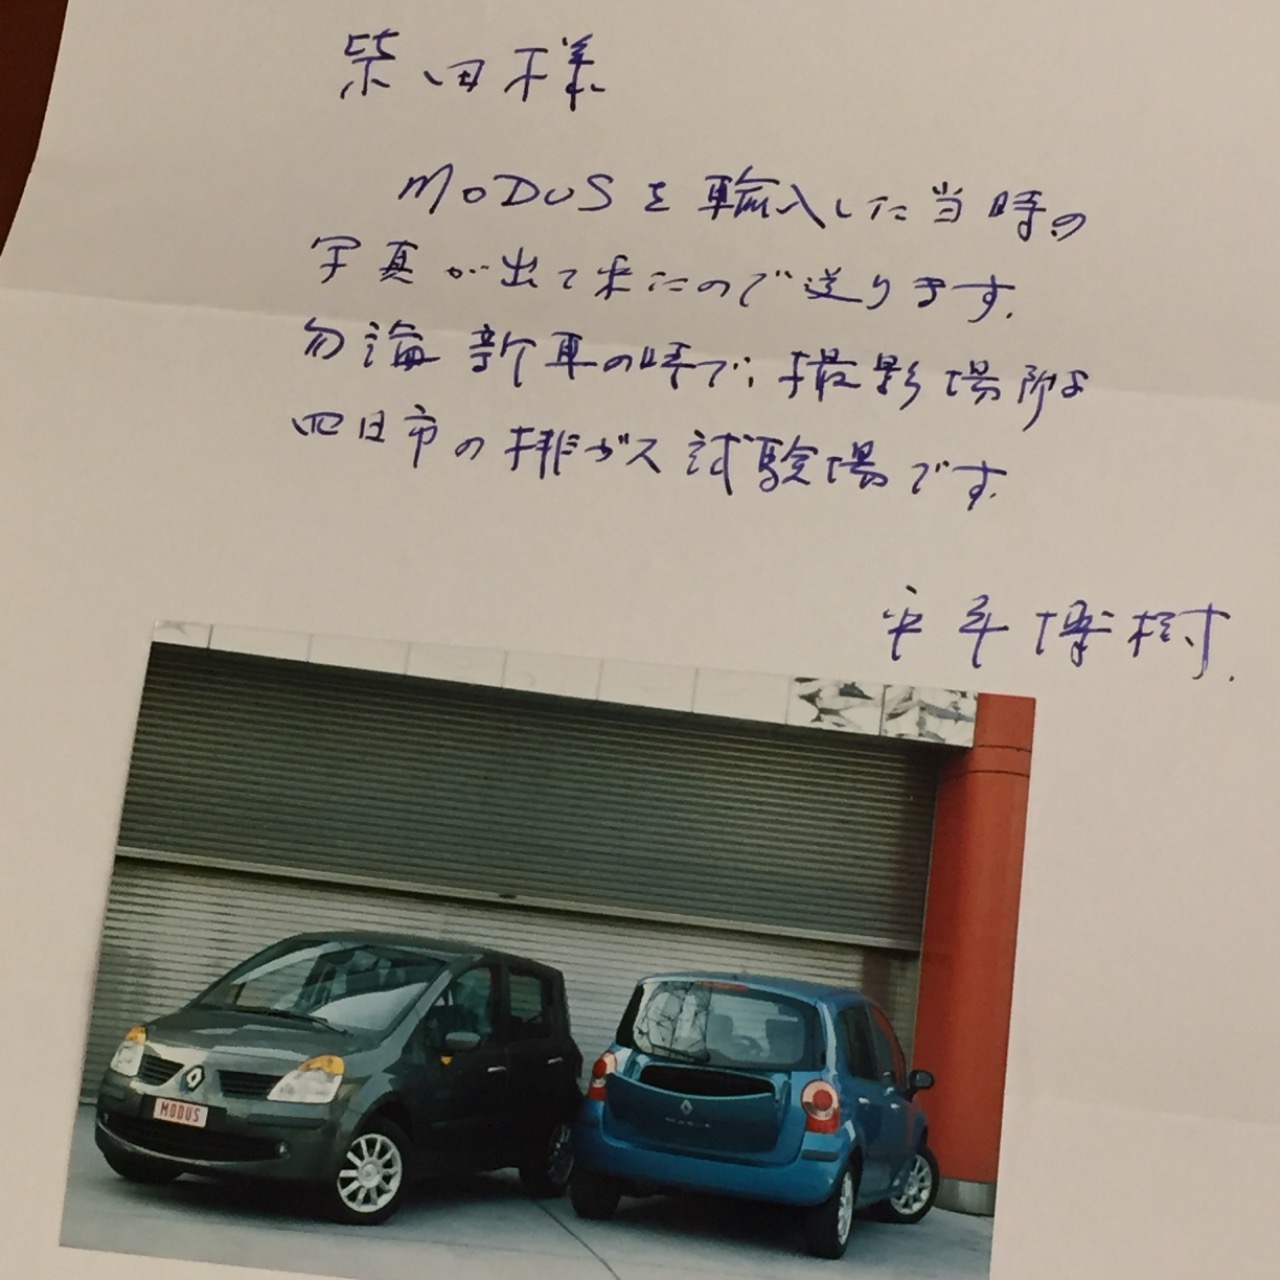 柴田様
MODUSを輸入した当時の
写真が出て来たので送ります.
勿論新車の時で、撮影場所は
四日市の排ガス試験場です.
博樹.
MODUS